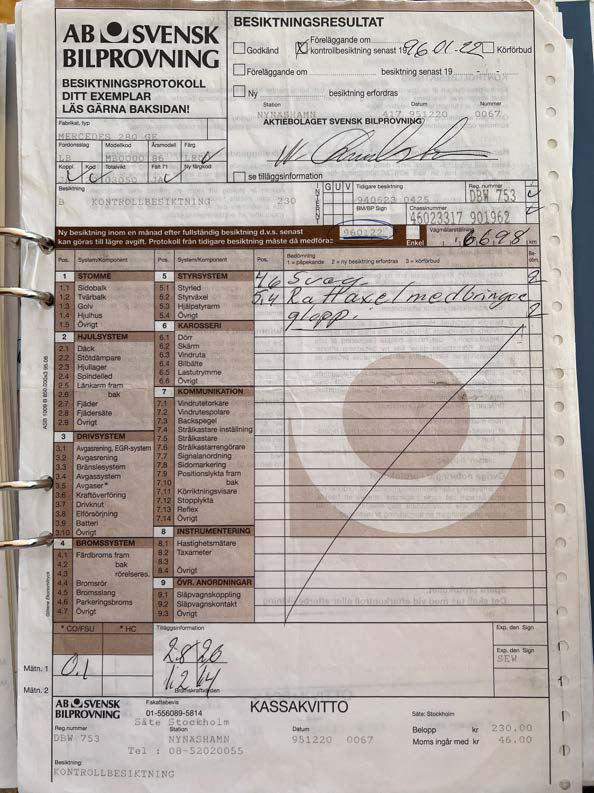 AB SVENSK
BILPROVNING
BESIKTNINGSPROTOKOLL
DITT EXEMPLAR
LÄS GÄRNA BAKSIDAN!
BESIKTNINGSRESULTAT
Godkänd
Föreläggande om
kontrollbesiktning senast 1996.01.22
Körförbud
Föreläggande om besiktning senast 19
Ny besiktning erfordras
Station Datum Nummer
NYNÄSHAMN 417 951220 0067
AKTIEBOLAGET SVENSK BILPROVNING
se tilläggsinformation
Fabrikat, typ
MERCEDES 280 GE
Fordonsslag Modellkod Årsmodell Färg
LB MB0000 86
Koppl. Kod Totalvikt Fält 71 Ny färgkod
JA 03050 JA
Besiktning
B KONTROLLBESIKTNING 230
INTERNT
G U V
Tidigare besiktning
940623 0425
Reg. nummer
DBW 753
BM/BP Sign
Chassinummer
46023317 901962
Ny besiktning inom en månad efter fullständig besiktning d.v.s. senast
kan göras till lägre avgift. Protokoll från tidigare besiktning måste då medföras
960122
Enkel
Vägmätarställning
6698 km
Pos. System/Komponent
Pos. System/Komponent
Pos.
Bedömning
1 = påpekande 2 = ny besiktning erfordras 3 = körförbud
Be-
döm.
1 STOMME
1.1 Sidobalk
1.2 Tvärbalk
1.3 Golv
1.4 Hjulhus
1.5 Övrigt
2 HJULSYSTEM
2.1 Däck
2.2 Stötdämpare
2.3 Hjullager
2.4 Spindelled
2.5 Länkarm fram
2.6 bak
2.7 Fjäder
2.8 Fjädersäte
2.9 Övrigt
3 DRIVSYSTEM
3.1 Avgasrening, EGR-system
3.2 Avgasrening
3.3 Bränslesystem
3.4 Avgassystem
3.5 Avgaser*
3.6 Kraftöverföring
3.7 Drivknut
3.8 Elförsörjning
3.9 Batteri
3.10 Övrigt
4 BROMSSYSTEM
4.1 Färdbroms fram
4.2 bak
4.3 rörelseres.
4.4 Bromsrör
4.5 Bromsslang
4.6 Parkeringsbroms
4.7 Övrigt
5 STYRSYSTEM
5.1 Styrled
5.2 Styrväxel
5.3 Hjälpstyrarm
5.4 Övrigt
6 KAROSSERI
6.1 Dörr
6.2 Skärm
6.3 Vindruta
6.4 Bilbälte
6.5 Lastutrymme
6.6 Övrigt
7 KOMMUNIKATION
7.1 Vindrutetorkare
7.2 Vindrutespolare
7.3 Backspegel
7.4 Strålkastare inställning
7.5 Strålkastare
7.6 Strålkastarrengörare
7.7 Signalanordning
7.8 Sidomarkering
7.9 Positionslykta fram
7.10 bak
7.11 Körriktningsvisare
7.12 Stopplykta
7.13 Reflex
7.14 Övrigt
8 INSTRUMENTERING
8.1 Hastighetsmätare
8.2 Taxameter
8.3
8.4 Övrigt
9 ÖVR. ANORDNINGAR
9.1 Släpvagnskoppling
9.2 Släpvagnskontakt
9.3 Övrigt
4.6 Svag 2
5.4 Rattaxel medbringare
glapp. 2
*CO/FSU *HC
Mätn. 1
0.1
Mätn. 2
Tilläggsinformation
28/26
12/14
Bromskraftvärden
Exp. den Sign
Exp. den Sign
SEW
AB SVENSK
BILPROVNING
Fakattebevis
01-556089-5814
Säte Stockholm
KASSAKVITTO
Säte: Stockholm
Reg.nummer Station Datum
DBW 753 NYNÄSHAMN 951220 0067
Tel : 08-52020055
Belopp kr 230.00
Moms ingår med kr 46.00
Besiktning:
KONTROLLBESIKTNING